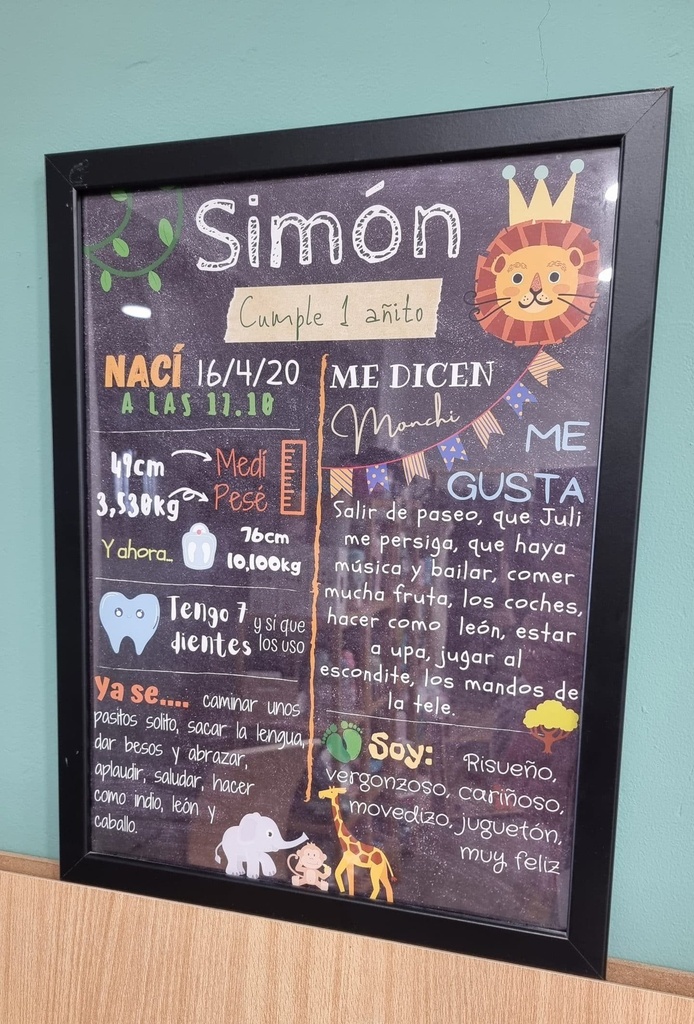 Simón
Cumple 1 añito
NACÍ 16/4/20
A LAS 17.10
49cm Medí
3,530kg Pesé
Y ahora... 76cm
10,100kg
Tengo 7 y si que
dientes los uso
Ya se.... caminar unos
pasitos solito, sacar la lengua,
dar besos y abrazar,
aplaudir, saludar, hacer
como indio, león y
caballo.
ME DICEN
Monchi
ME
GUSTA
Salir de paseo, que Juli
me persiga, que haya
música y bailar, comer
mucha fruta, los coches,
hacer como león, estar
a upa, jugar al
escondite, los mandos de
la tele.
Soy: Risueño,
vergonzoso, cariñoso,
movedizo, juguetón,
muy feliz